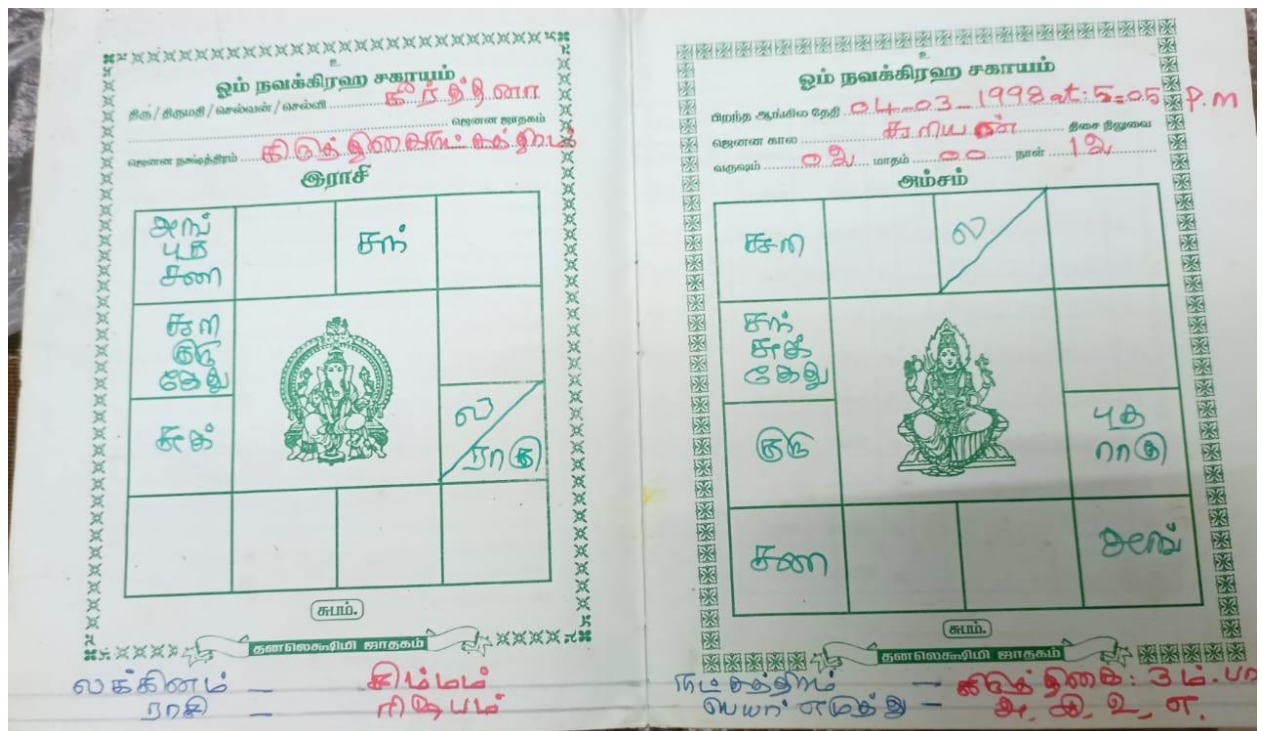 உ
ஓம் நவக்கிரஹ சகாயம்
திரு / திருமதி / செல்வன் / செல்வி கீர்த்தனா
ஜெனன ஜாதகம்
ஜெனன நக்ஷத்திரம்
இராசி
அங்
புத
சனி
சந்
சூரி
குரு
கேது
சுக்
ல
ராகு
சுபம்.
தனலெக்ஷிமி ஜாதகம்
லக்கினம் - சிம்மம்
ராசி - ரிஷபம்
உ
ஓம் நவக்கிரஹ சகாயம்
பிறந்த ஆங்கில தேதி 04-03-1998 at: 5=05 P.m
ஜெனன கால சூரியன் திசை நிலுவை
வருஷம் 02 மாதம் 00 நாள் 12
அம்சம்
சூரி
ல
சந்
சுக்
கேது
குரு
புத
ராகு
சனி
அங்
சுபம்.
தனலெக்ஷிமி ஜாதகம்
நட்சத்திரம் - கிருத்திகை: 3ம். பா
பெயர் எழுத்து - அ, இ, உ, எ.